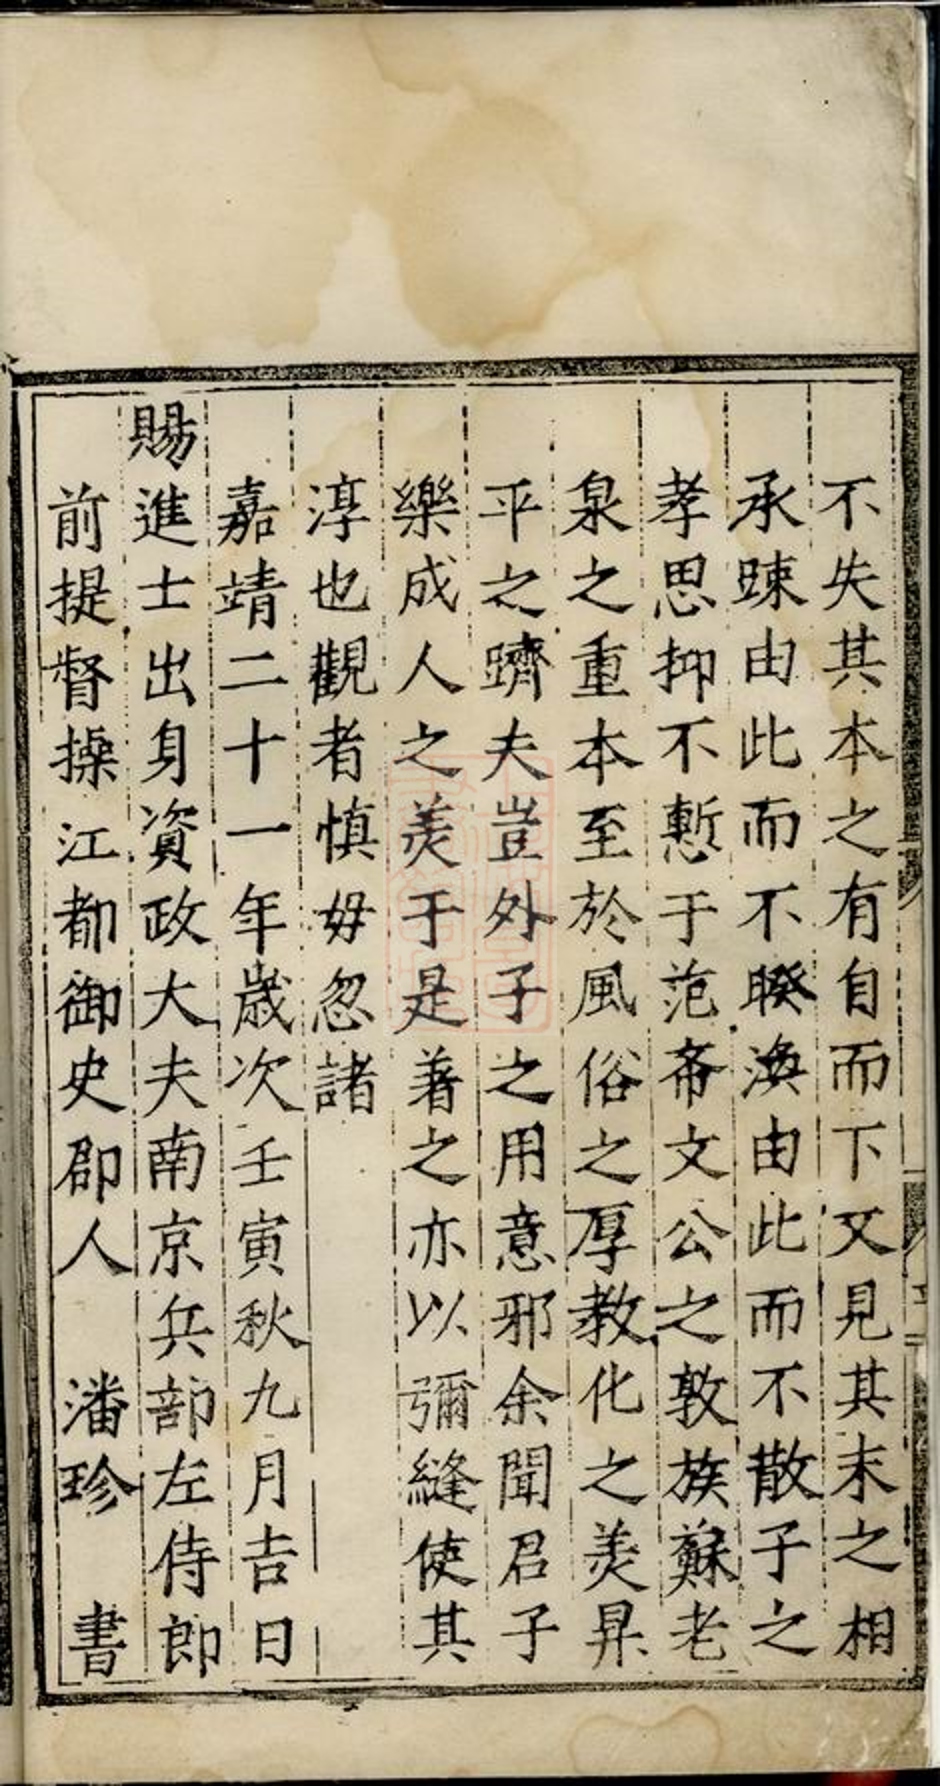 不失其本之有自而下又見其末之相
承踈由此而不睽渙由此而不散子之
孝思抑不慙于范希文公之敦族蘇老
泉之重本至於風俗之厚教化之美昇
平之躋夫豈外子之用意邪余聞君子
樂成人之美于是著之亦以彌縫使其
淳也觀者慎毋忽諸
嘉靖二十一年歲次壬寅秋九月吉日
賜進士出身資政大夫南京兵部左侍郎
前提督操江都御史郡人 潘珍 書